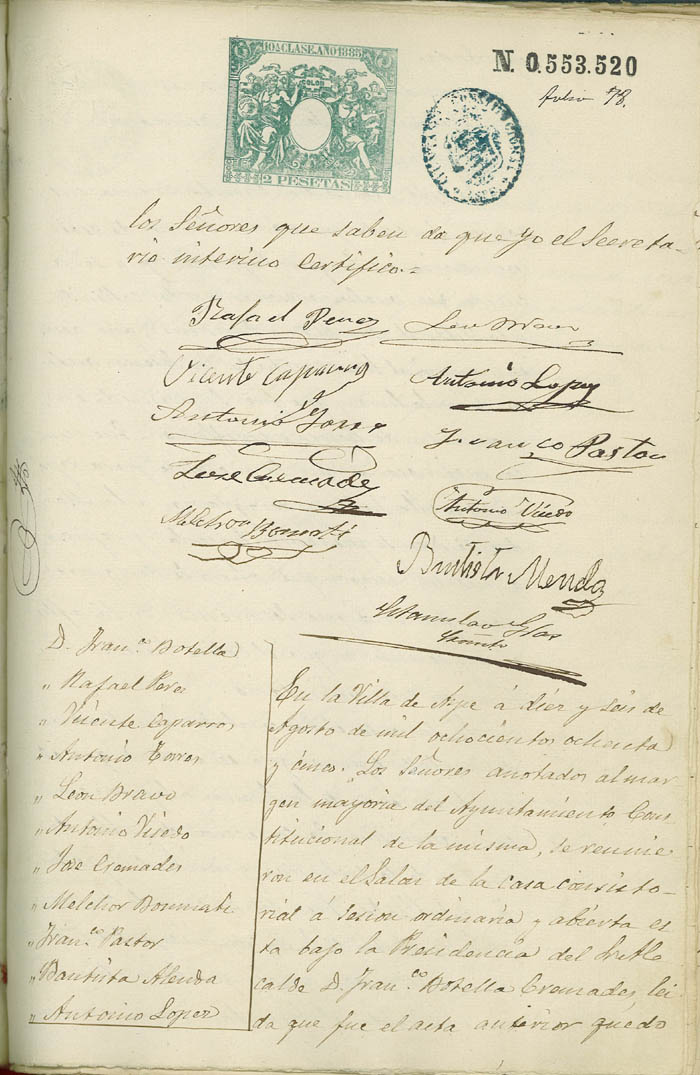 10ª CLASE. AÑO 1885
2 PESETAS
N. 0.553.520
folio 78.
los Señores que saben da que yo el Secreta-
rio interino certifico.=
Rafael Perez
Leon Bravo
Vicente Caparros
Antonio Lopez
Antonio Torres
Franco Pastor
José Cremades
Antonio Visedo
Melchor Bonmati
Bautista Alenda
Estanislao
D. Fran.co Botella
„ Rafael Peres
„ Vicente Caparros
„ Antonio Torres
„ Leon Bravo
„ Antonio Visedo
„ Jose Cremades
„ Melchor Bonmati
„ Fran.co Pastor
„ Bautista Alenda
„ Antonio Lopez
En la Villa de Aspe á diez y seis de
Agosto de mil ochocientos ochenta
y cinco. Los Señores anotados al mar-
gen mayoria del Ayuntamiento Cons-
titucional de la misma, se reunie-
ron en el Salon de la casa consisto-
rial á sesion ordinaria y abierta es
ta bajo la Presidencia del Sr. Al
calde D. Fran.co Botella Cremades, lei
da que fue el acta anterior quedo